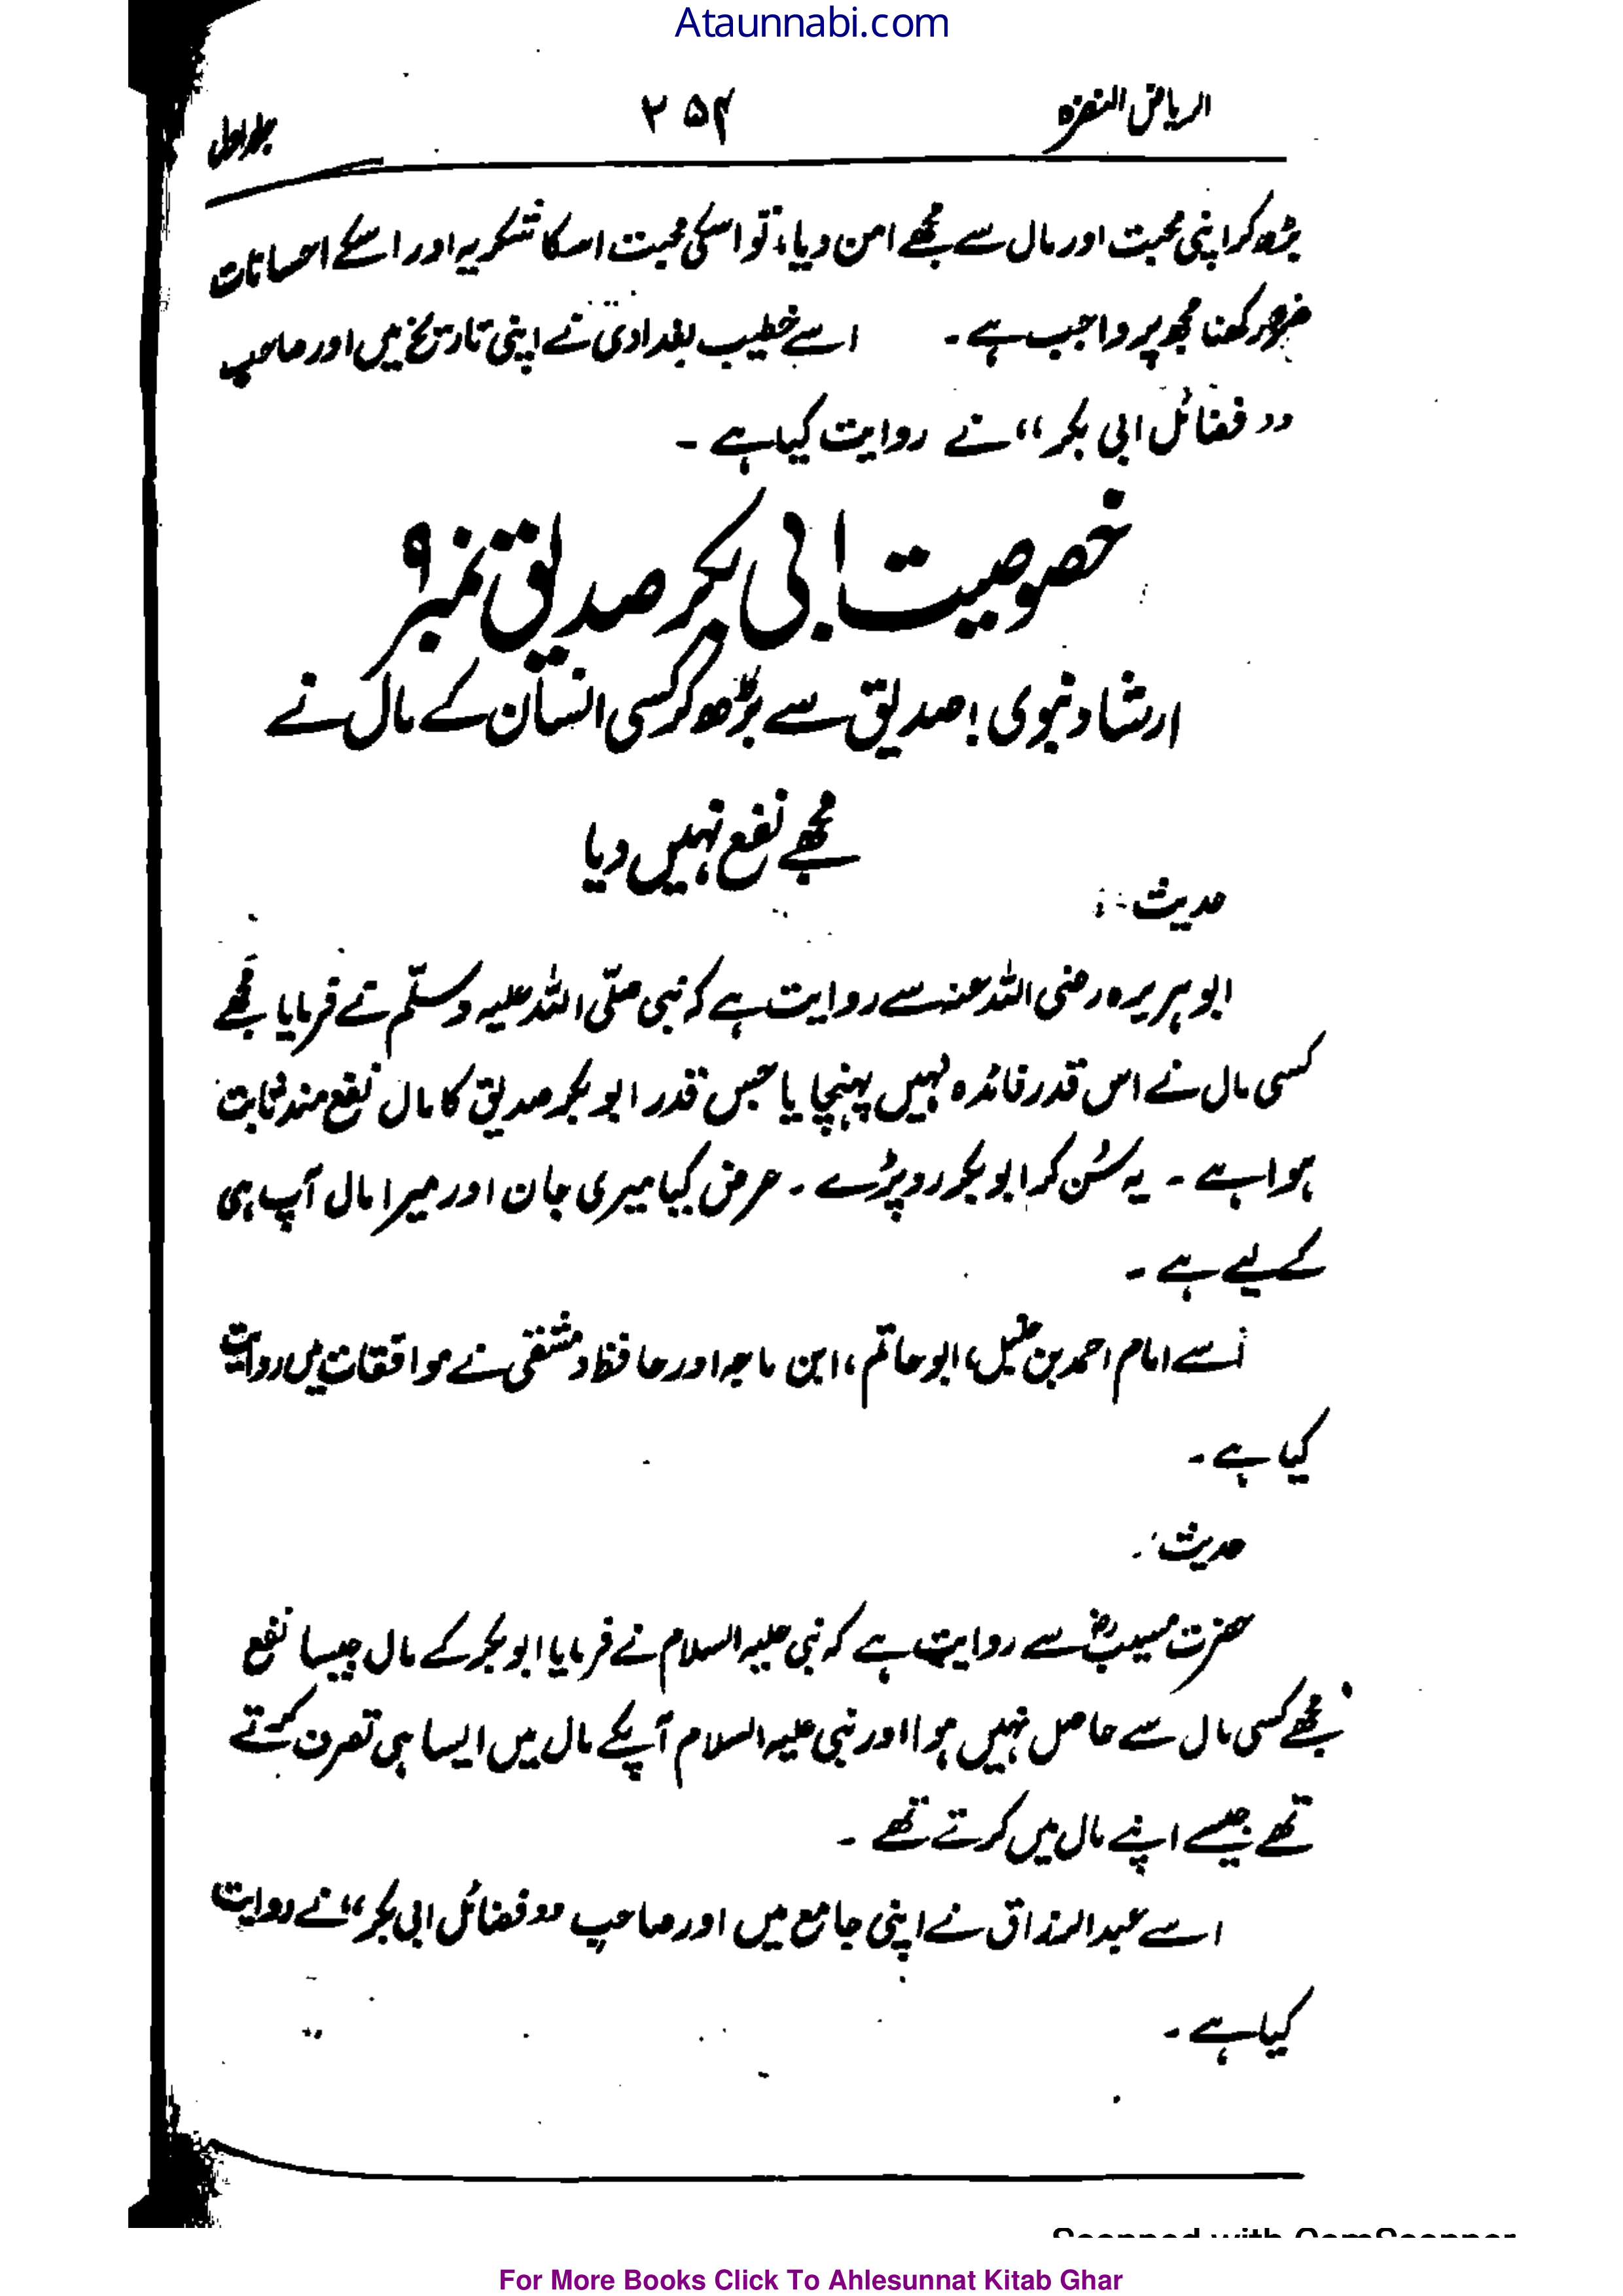 Ataunnabi.com
الریاض النضرہ ۲۵۴ جلد اول
بڑھ کر اپنی محبت اور مال سے مجھے امن دیا، تو اسکی محبت اسکا شکریہ اور اسکے احسانات
رکھنا مجھ پر واجب ہے۔ اسے خطیب بغدادی نے اپنی تاریخ میں اور صاحب
’’فضائل ابی بکر‘‘ نے روایت کیا ہے۔
خصوصیت ابی بکر صدیق نمبر ۹
ارشاد نبوی! صدیق سے بڑھ کر کسی انسان کے مال نے
مجھے نفع نہیں دیا
حدیث:
ابوہریرہ رضی اللہ عنہ سے روایت ہے کہ نبی صلّی اللہ علیہ وسلّم نے فرمایا مجھے
کسی مال نے اس قدر فائدہ نہیں پہنچایا جس قدر ابوبکر صدیق کا مال نفع مند ثابت
ہوا ہے۔ یہ سُن کر ابوبکر رو پڑے۔ عرض کیا میری جان اور میرا مال آپ ہی
کے لیے ہے۔
اسے امام احمد بن حنبل، ابوحاتم، ابن ماجہ اور حافظ دمشقی نے موافقات میں روایت
کیا ہے۔
حدیث:
حضرت مسیبؓ سے روایت ہے کہ نبی علیہ السلام نے فرمایا ابوبکر کے مال جیسا نفع
مجھے کسی مال سے حاصل نہیں ہوا اور نبی علیہ السلام آپکے مال میں ایسا ہی تصرف کرتے
تھے جیسے اپنے مال میں کرتے تھے۔
اسے عبدالرزاق نے اپنی جامع میں اور صاحب ’’فضائل ابی بکر‘‘ نے روایت
کیا ہے۔
Scanned with CamScanner
For More Books Click To Ahlesunnat Kitab Ghar